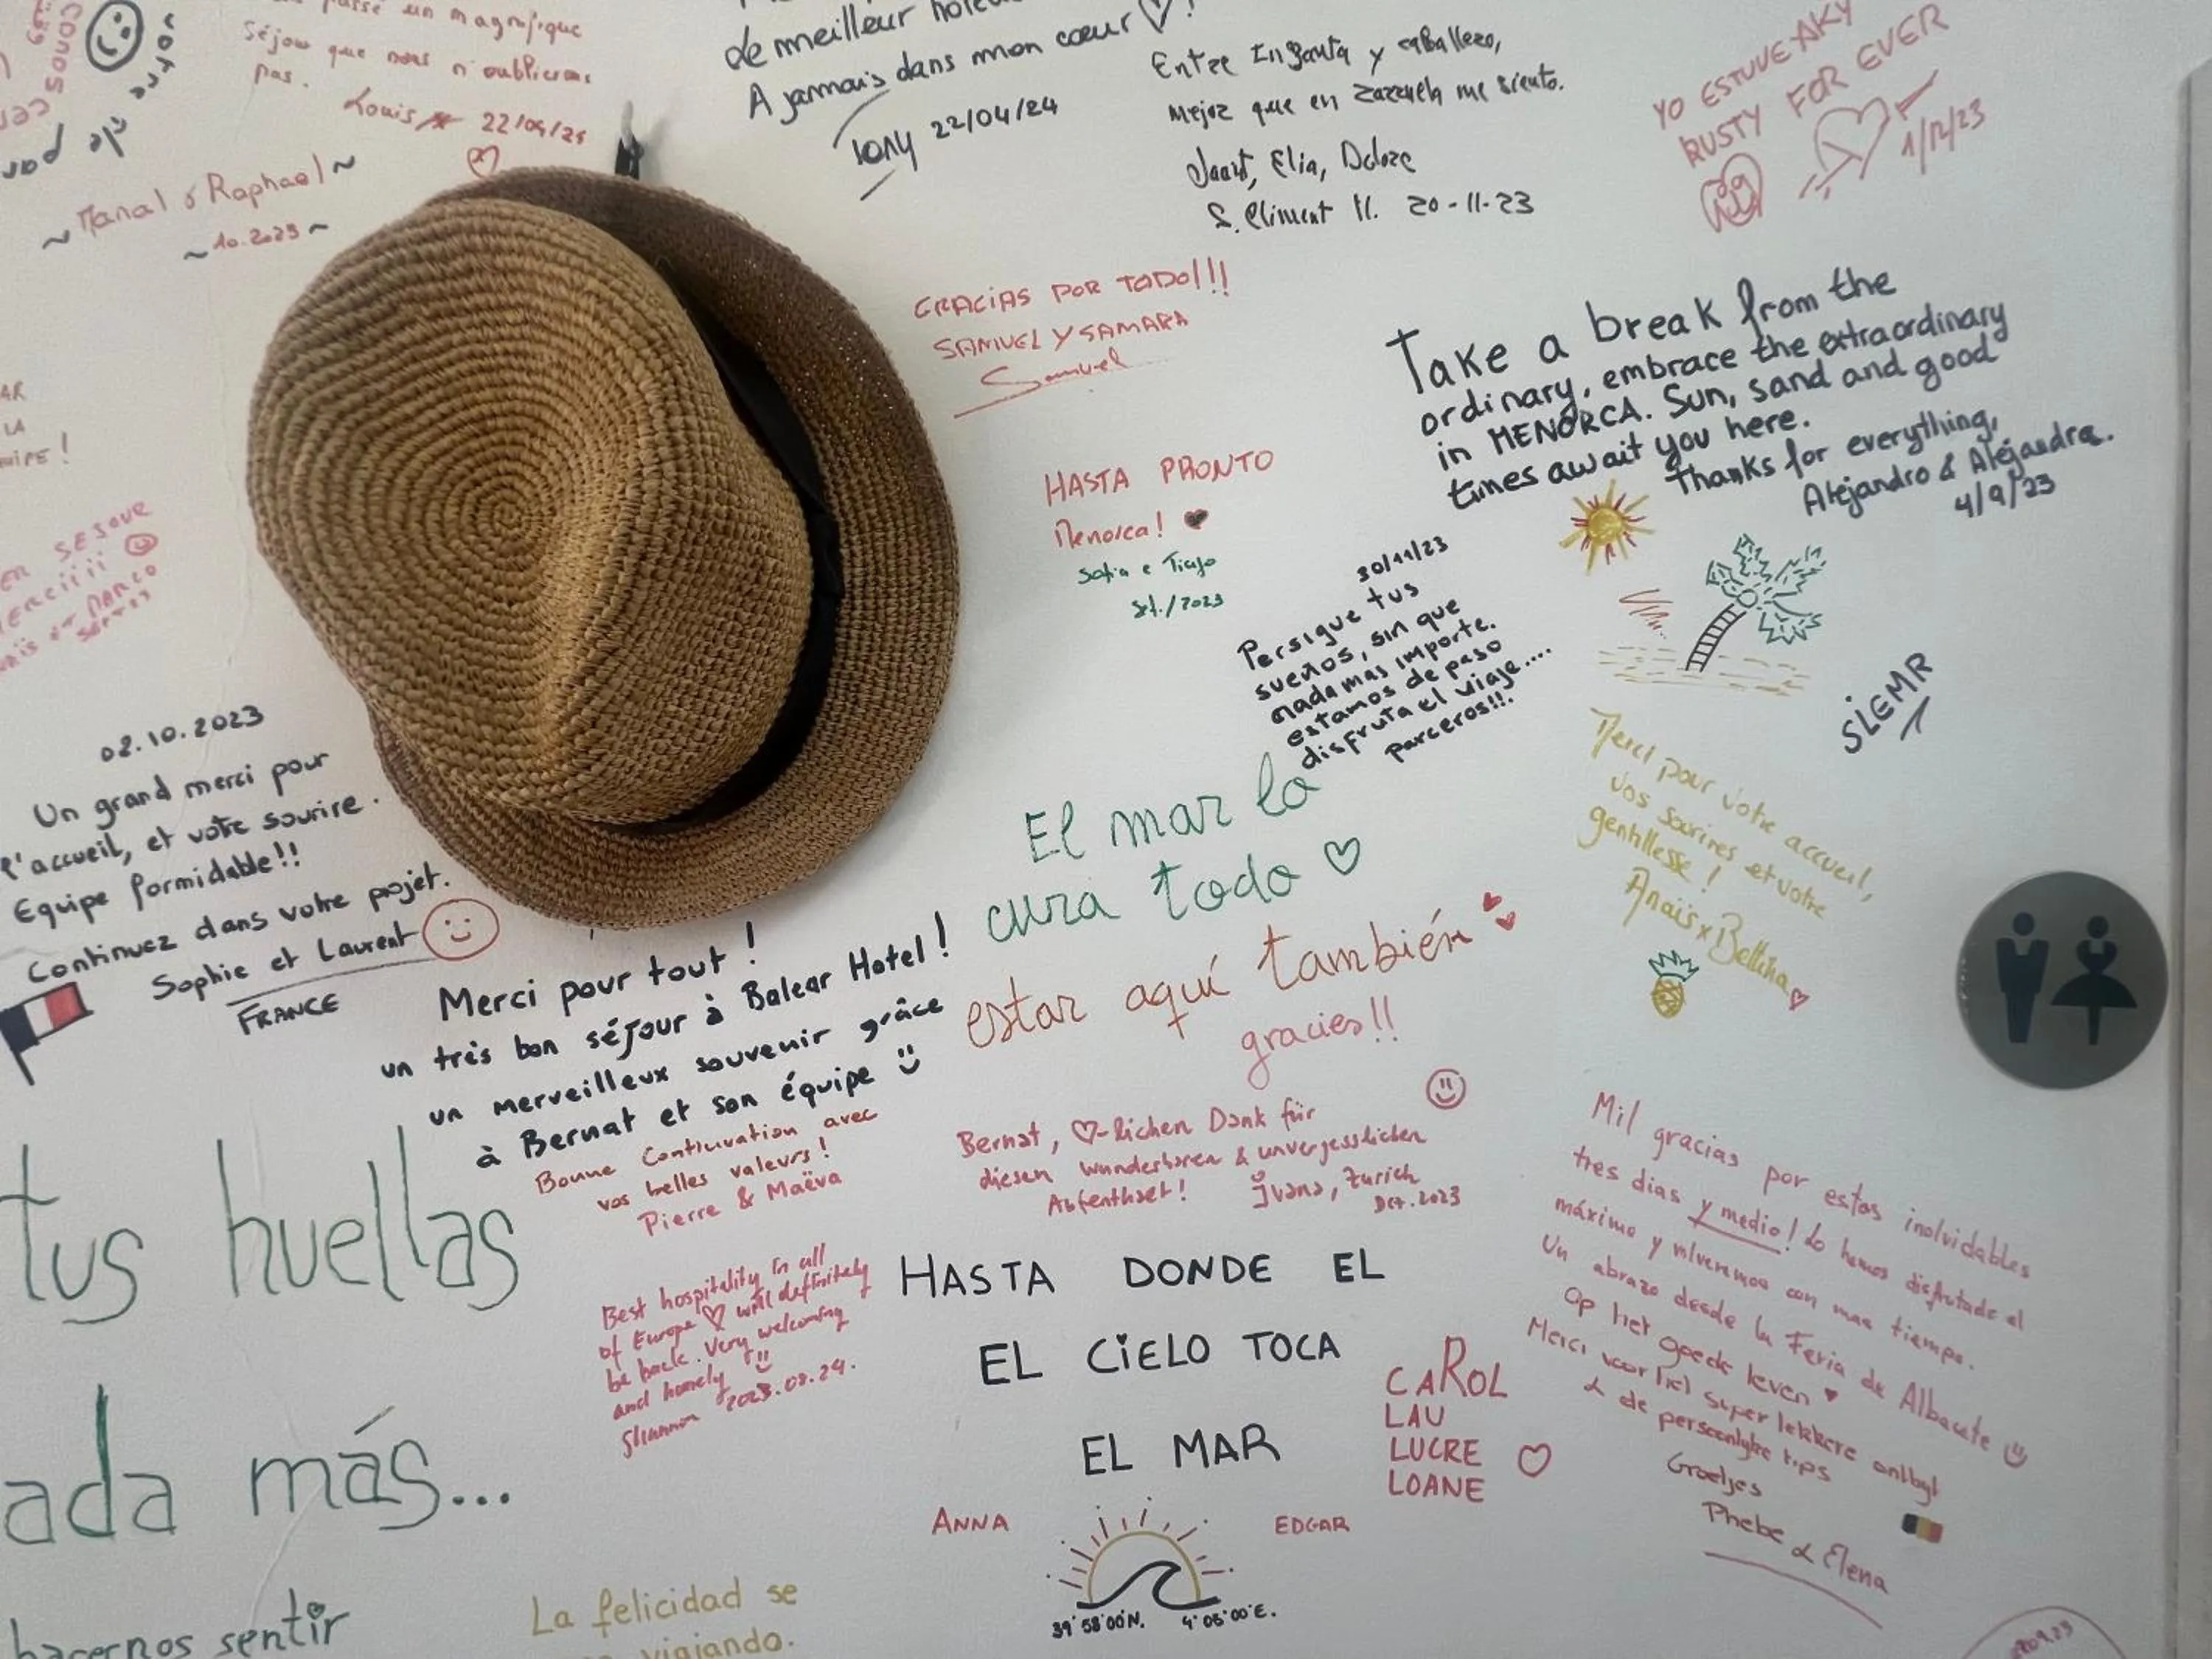 un magnifique
séjour que nous n'oublierons
pas.
Louis 22/04/24
~ Manal & Raphael ~
~ 10.2023 ~
Le meilleur
A jammais dans mon cœur ♡!
Tony 22/04/24
Entre y caballero,
mejor que en Zarzuela me siento.
Elia,
S. Climent 20-11-23
YO ESTUVE AKY
RUSTY FOR EVER
1/12/23
GRACIAS POR TODO!!!
SAMUEL Y SAMARA
Samuel
Take a break from the
ordinary, embrace the extraordinary
in MENORCA. Sun, sand and good
times await you here.
Thanks for everything,
Alejandro & Alejandra.
4/9/23
HASTA PRONTO
Menorca! ♥
Sofia e Tiago
Set./2023
30/11/23
Persigue tus
sueños, sin que
nada mas importe.
estamos de paso
disfruta el viaje....
parceros!!!
SLEMR
02.10.2023
Un grand merci pour
l'accueil, et votre sourire.
Equipe formidable!!
Continuez dans votre projet.
Sophie et Laurent
FRANCE
El mar lo
cura todo ♡
estar aquí también
gracies!!
Merci pour votre accueil,
vos sourires et votre
gentillesse !
Anaïs x Bettina ♡
Merci pour tout !
un très bon séjour à Balear Hotel !
un merveilleux souvenir grâce
à Bernat et son équipe
Bonne Continuation avec
vos belles valeurs!
Pierre & Maëva
Bernat, ♡-lichen Dank für
diesen wunderbaren & unvergesslichen
Aufenthalt!
Ivana, Zurich
2023
tus huellas
ada más...
hacernos sentir
Best hospitality in all
of Europe ♡ will definitely
be back. Very welcoming
and homely
Shannon 2023.08.24.
HASTA DONDE EL
EL CIELO TOCA
EL MAR
ANNA EDGAR
39°58'00"N. 4°05'00"E.
CAROL
LAU
LUCRE ♡
LOANE
Mil gracias por estos inolvidables
tres dias y medio! Lo hemos disfrutado al
máximo y volveremos con mas tiempo.
Un abrazo desde la Feria de Albacete
Op het goede leven ♥
Merci voor het super lekkere ontbijt
& de persoonlijke tips
Groetjes
Phebe & Elena
La felicidad se
viajando.